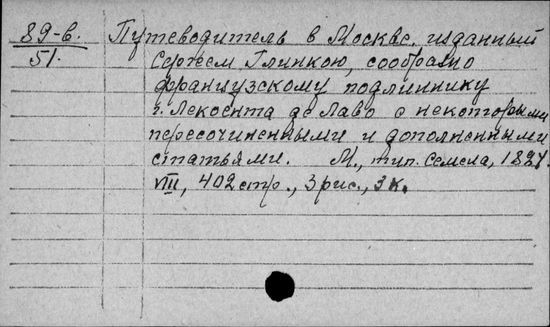 89-в. Путеводитель в Москве, изданный
51. Сергеем Глинкою, сообразно
французскому подлиннику
г. Лекоента де Лаво с некоторыми
пересочиненными и дополненными
статьями. М., тип. Семена, 1824.
VIII, 402 стр., 3 рис., 3 к.